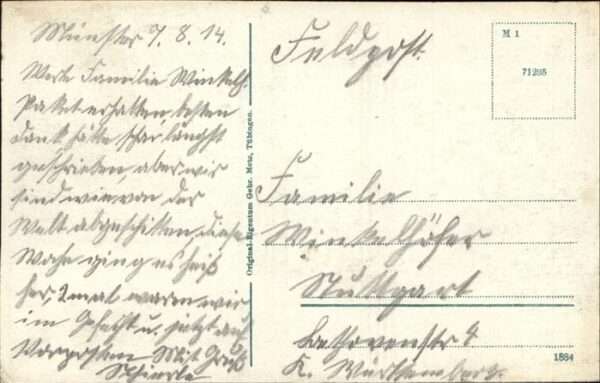 Münster 7.8.14.
Werte Familie Winkelh.
Paket erhalten, besten
Dank hätte schon längst
geschrieben, aber wir
sind wie von der
Welt abgeschitten, diese
Woche ging es heiß
her, 2 mal waren wir
im Gefecht u. jetzt auf
Vorposten Mit Gruß
Original-Eigentum Gebr. Metz, Tübingen.
Feldpost.
M 1
71295
Familie
Winkelhöfer
Stuttgart
Beethovenstr
K. Württemberg.
1884